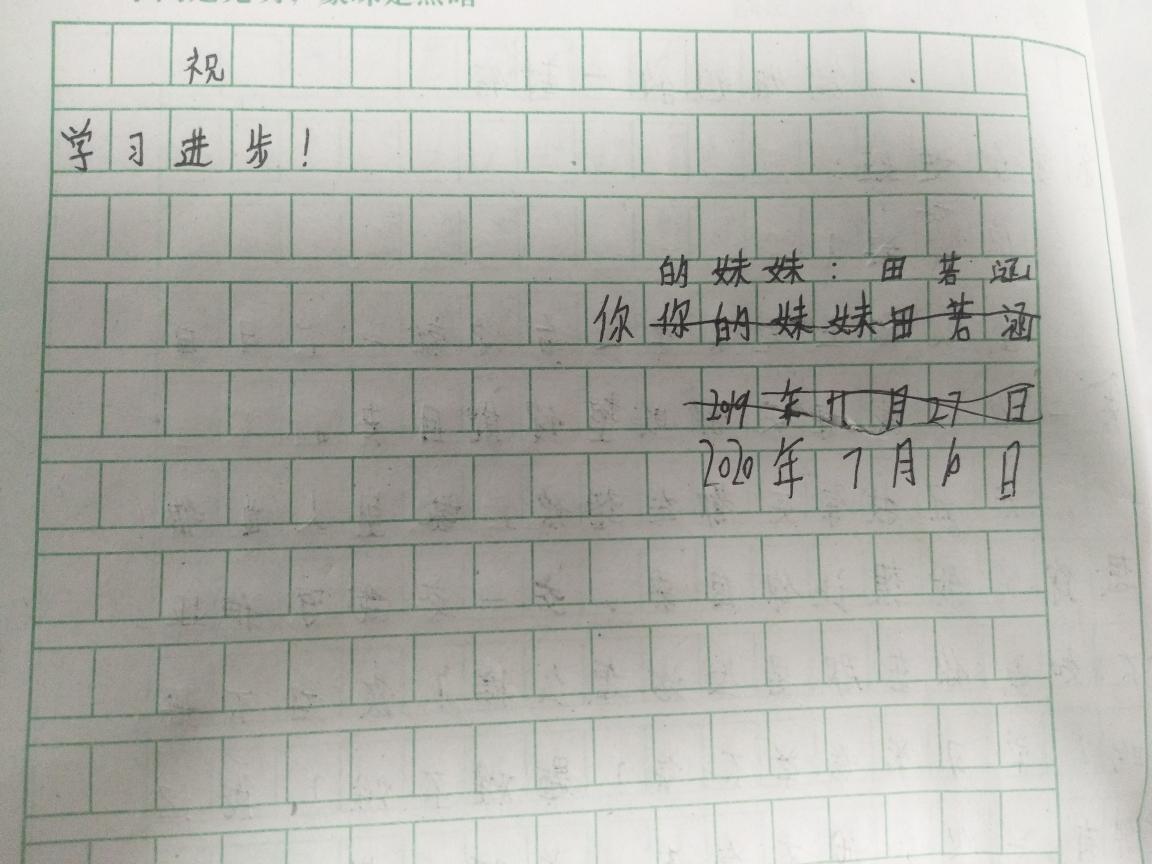 祝
学习进步！
的妹妹：田若涵
你你的妹妹田若涵
2019年11月27日
2020年7月10日